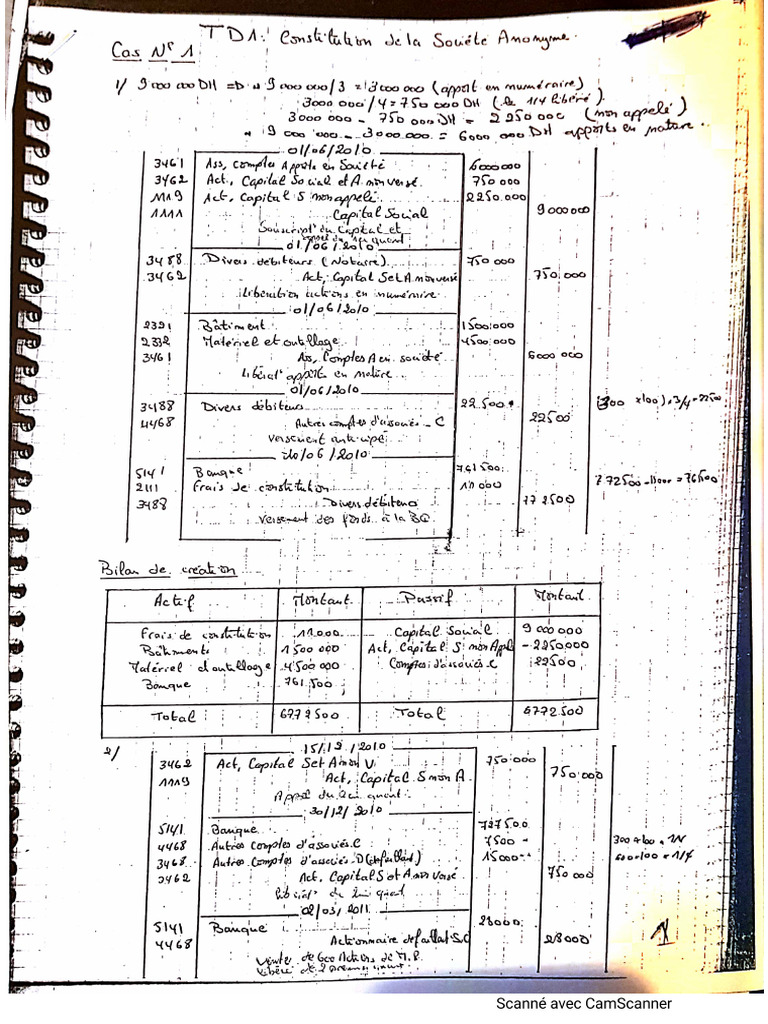 TD1: Constitution de la Société Anonyme.
Cas N° 1
1/ 9 000 000 DH =D " 9 000 000/3 = 3 000 000 (apport en numéraire)
3 000 000/4 = 750 000 DH (le 1/4 libéré).
3 000 000 - 750 000 DH = 2 250 000 (non appelé)
" 9 000 000 - 3 000 000 = 6 000 000 DH apports en nature.
01/06/2010
3461 Ass, comptes Apports en Société 6 000 000
3462 Act, Capital Social et A non versé. 750 000
1119 Act, Capital S non appelé 2 250 000
1111 Capital Social 9 000 000
Souscript° du capital et
01/06/2010
3488 Divers débiteurs (Notaire) 750 000
3462 Act, Capital S et A non versé 750 000
Libération actions en numéraire.
01/06/2010
2321 Bâtiment 1 500 000
2332 Matériel et outillage 4 500 000
3461 Ass, Comptes A en société 6 000 000
Libérat° apport en nature
01/06/2010
3488 Divers débiteurs 22 500 (300 x 100) x 3/4 = 22500
4468 Autres comptes d'associés - C 22500
versement anticipé
20/06/2010
5141 Banque 761 500
2111 Frais de constitution 11 000 772500 - 11000 = 76500
3488 Divers débiteurs 772500
versement des fonds à la BQ
Bilan de création
Actif Montant Passif Montant
Frais de constitution 11 000 Capital Social 9 000 000
Bâtiments 1 500 000 Act, Capital S non Appl - 2250000
Matériel et outillage 4 500 000 Comptes d'associés C 22500
Banque 761 500
Total 6772500 Total 6772500
2/ 15/12/2010
3462 Act, Capital S et A non V. 750 000
1119 Act, Capital S non A. 750 000
Appel du 2ème quart
30/12/2010
5141 Banque 727500
4468 Autres Comptes d'associés C 7500 300 x 100 x 1/4
3468 Autres Comptes d'associés D (défaillant) 15000 600 x 100 x 1/4
3462 Act, Capital S et A non versé 750 000
Libérat° du 2ème quart
02/03/2011
5141 Banque 28000
4468 Actionnaire défaillant S.C 28000
Vente de 600 Actions de M. P.
libéré de 2 premiers quart
1
Scanné avec CamScanner